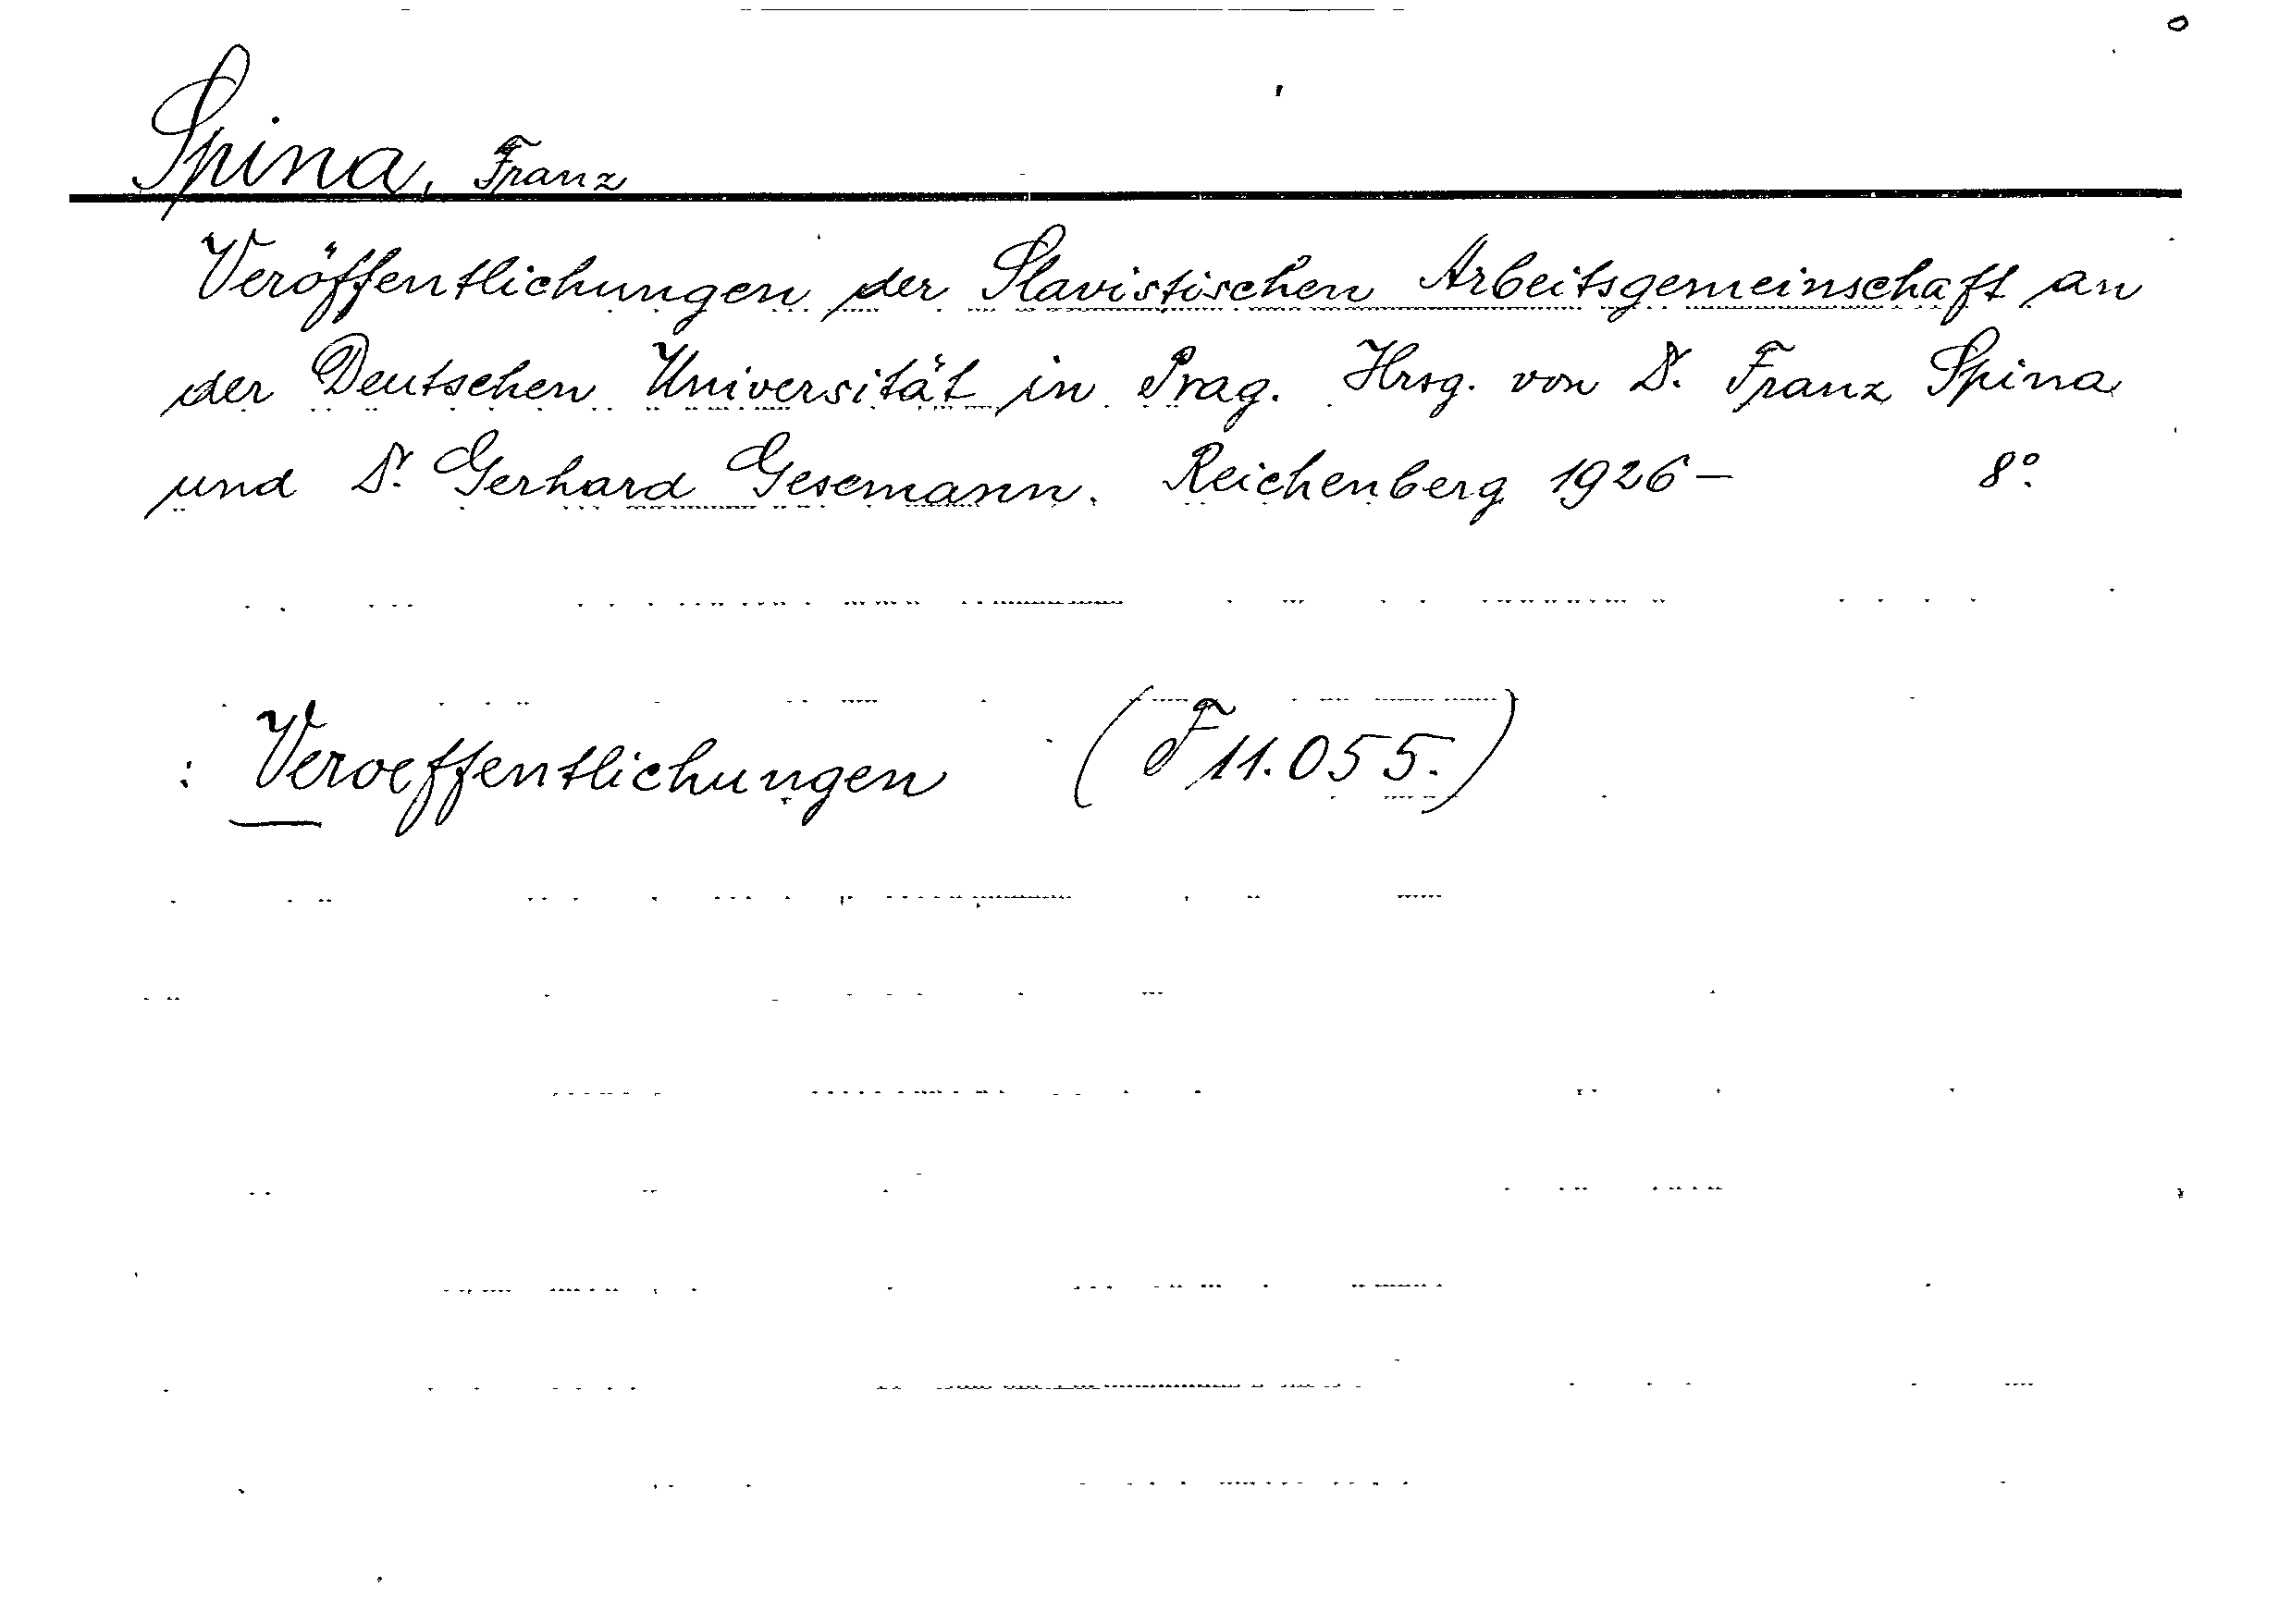 Spina, Franz
Veröffentlichungen der Slavistischen Arbeitsgemeinschaft an
der Deutschen Universität in Prag. Hrsg. von Dr. Franz Spina
und Dr. Gerhard Gesemann. Reichenberg 1926— 8°.
: Veroeffentlichungen (F 11.055.)